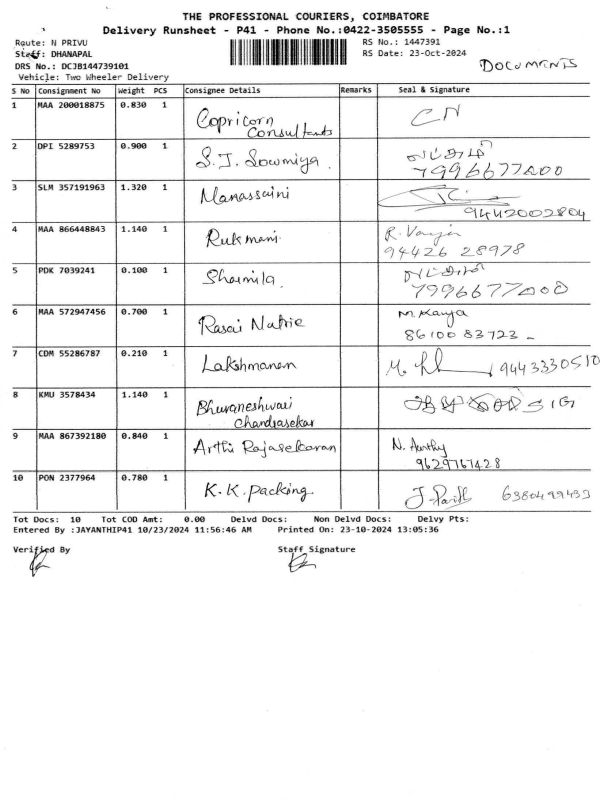 THE PROFESSIONAL COURIERS, COIMBATORE
Delivery Runsheet - P41 - Phone No.:0422-3505555 - Page No.:1
Route: N PRIVU RS No.: 1447391
Staff: DHANAPAL RS Date: 23-Oct-2024
DOCUMENTS
DRS No.: DCJB144739101
Vehicle: Two Wheeler Delivery
S No Consignment No Weight PCS Consignee Details Remarks Seal & Signature
1 MAA 200018875 0.830 1 Copricorn Consultants CN
2 DPI 5289753 0.900 1 S.J. Sowmiya. 7996677000
3 SLM 357191963 1.320 1 Manassaini 9442002804
4 MAA 866448843 1.140 1 Rukmani R. 94426 28978
5 PDK 7039241 0.100 1 Sharmila. 7996677000
6 MAA 572947456 0.700 1 Rasai M. Kanya 8610083723
7 CDM 55286787 0.210 1 Lakshmanan M. 9443330510
8 KMU 3578434 1.140 1 Bhuvaneshwari Chandrasekar
9 MAA 867392180 0.840 1 Arthi Rajasekaran N. Aarthy 9629767428
10 PON 2377964 0.780 1 K.K. packing J.
Tot Docs: 10 Tot COD Amt: 0.00 Delvd Docs: Non Delvd Docs: Delvy Pts:
Entered By :JAYANTHIP41 10/23/2024 11:56:46 AM Printed On: 23-10-2024 13:05:36
Verified By Staff Signature